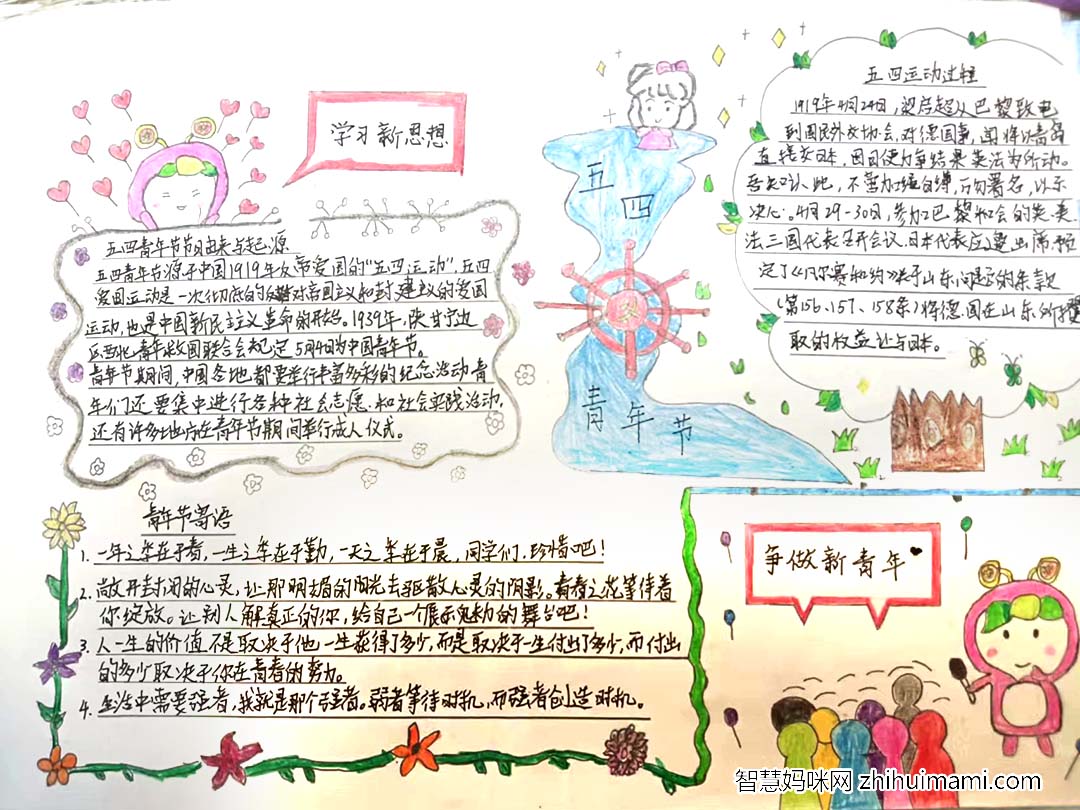 学习新思想
五四青年节节日由来与起源
五四青年节源于中国1919年反帝爱国的“五四运动”，五四
爱国运动是一次彻底的反对帝国主义和封建主义的爱国
运动，也是中国新民主主义革命的开始。1939年，陕甘宁边
区西北青年救国联合会规定5月4日为中国青年节。
青年节期间，中国各地都要举行丰富多彩的纪念活动青
年们还要集中进行各种社会志愿和社会实践活动，
还有许多地方在青年节期间举行成人仪式。
五四
青年节
五四运动过程
1919年4月24日，梁启超从巴黎致电
到国民外交协会，对德国事，闻将以青岛
直接交日本，因日使力争结果英法为所动。
吾若认此，不啻加绳自缚，万勿署名，以示
决心。4月29-30日，参加巴黎和会的英、美、
法三国代表召开会议，日本代表应邀出席，预
定了《凡尔赛和约》关于山东问题的条款
（第156、157、158条）将德国在山东所攫
取的权益让与日本。
青年节寄语
1. 一年之午在于春，一生之午在于勤，一天之午在于晨，同学们，珍惜吧！
2. 敞开封闭的心灵，让那明媚的阳光去驱散心灵的阴影。青春之花等待着
你绽放。让别人解真正的你，给自己一个展示魅力的舞台吧！
3. 人一生的价值不是取决于他一生获得了多少，而是取决于一生付出了多少，而付出
的多少取决于你在青春的努力。
4. 生活中需要强者，我就是那个强者。弱者等待时机，而强者创造时机。
争做新青年
智慧妈咪网 zhihuimami.com